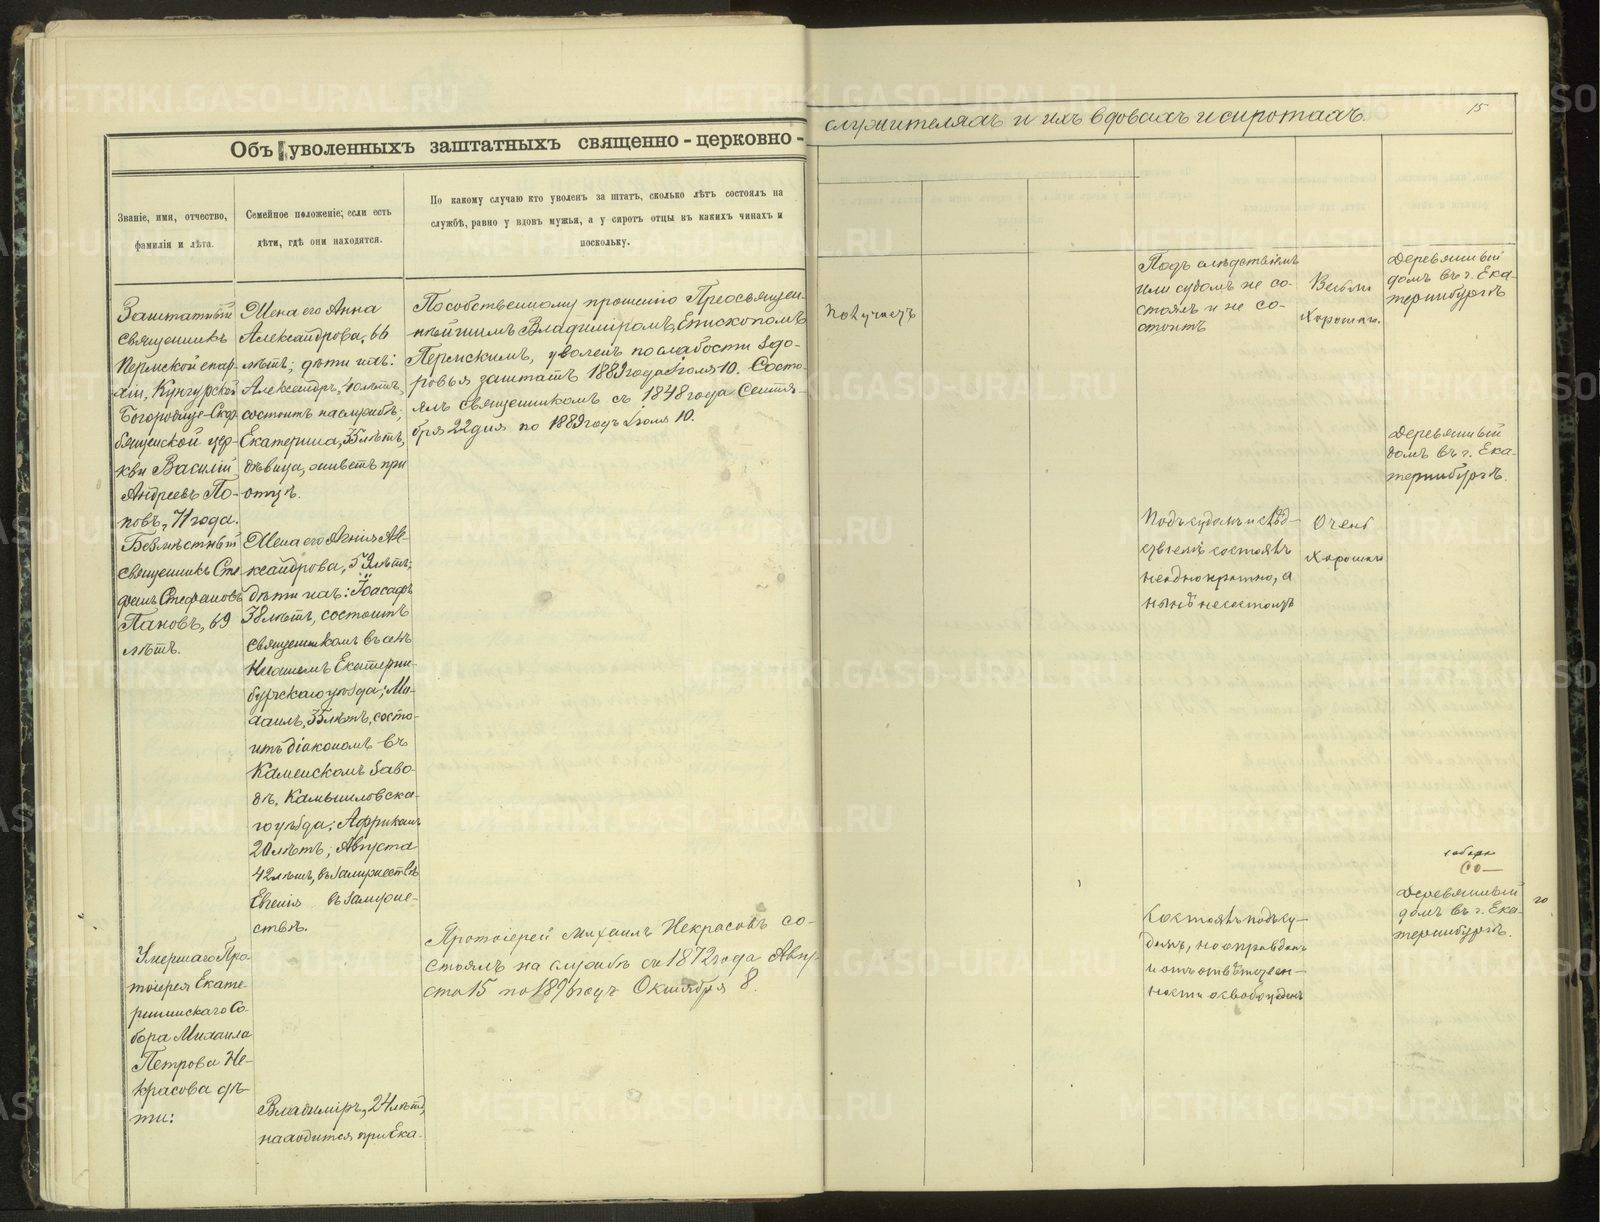 Объ уволенныхъ заштатныхъ священно-церковно-
служителяхъ и ихъ вдовахъ и сиротахъ.
15
Званіе, имя, отчество,
фамилія и лѣта.
Семейное положеніе; если есть
дѣти, гдѣ они находятся.
По какому случаю кто уволенъ за штатъ, сколько лѣтъ состоялъ на
службѣ, равно у вдовъ мужья, а у сиротъ отцы въ какихъ чинахъ и
поскольку.
Заштатный
священникъ
Пермской епар-
хіи, Кунгурской
Богородице-Скор-
бященской цер-
кви Василій
Андреевъ По-
повъ, 71 года.
Жена его Анна
Александрова, 66
лѣтъ; дѣти ихъ:
Александръ, 40 лѣтъ,
состоитъ на службѣ;
Екатерина, 35 лѣтъ,
дѣвица, живетъ при
отцѣ.
По собственному прошенію Преосвящен-
нѣйшимъ Владиміромъ, Епископомъ
Пермскимъ, уволенъ по слабости здо-
ровья заштатъ 1889 года Іюля 10. Состо-
ялъ священникомъ съ 1848 года Сентя-
бря 22 дня по 1889 годъ Іюля 10.
Получаетъ
Подъ слѣдствіемъ
или судомъ не со-
стоялъ и не со-
стоитъ
Весьма
хорошаго.
Деревянный
домъ въ г. Ека-
теринбургѣ
Деревянный
домъ въ г. Ека-
теринбургѣ.
Безмѣстный
священникъ Сте-
фанъ Стефановъ
Пановъ, 69
лѣтъ.
Жена его Агнія Але-
ксандрова, 59 лѣтъ;
дѣти ихъ: Іоасафъ
38 лѣтъ, состоитъ
священникомъ въ селѣ
Екатерин-
бургскаго уѣзда; Ми-
хаилъ, 35 лѣтъ, состо-
итъ діакономъ въ
Каменскомъ заво-
дѣ, Камышловска-
го уѣзда; Африканъ
20 лѣтъ; Августа
42 лѣтъ, въ замужествѣ
Евгенія въ замуже-
ствѣ.
Подъ судомъ и слѣд-
ствіемъ состоялъ
неоднократно, а
нынѣ не состоитъ
Очень
хорошаго
Умершаго Про-
тоіерея Екате-
рининскаго Со-
бора Михаила
Петрова Не-
красова дѣ-
ти:
Владиміръ, 24 лѣтъ,
находится при Ека-
Протоіерей Михаилъ Некрасовъ со-
стоялъ на службѣ съ 1872 года Авгу-
ста 15 по 1896 годъ Октября 8.
Состоялъ подъ су-
домъ, но оправданъ
и отъ отвѣтствен-
ности освобожденъ
собора
Со—
Деревянный
домъ въ г. Ека-
теринбургѣ.
го
METRIKI.GASO-URAL.RU